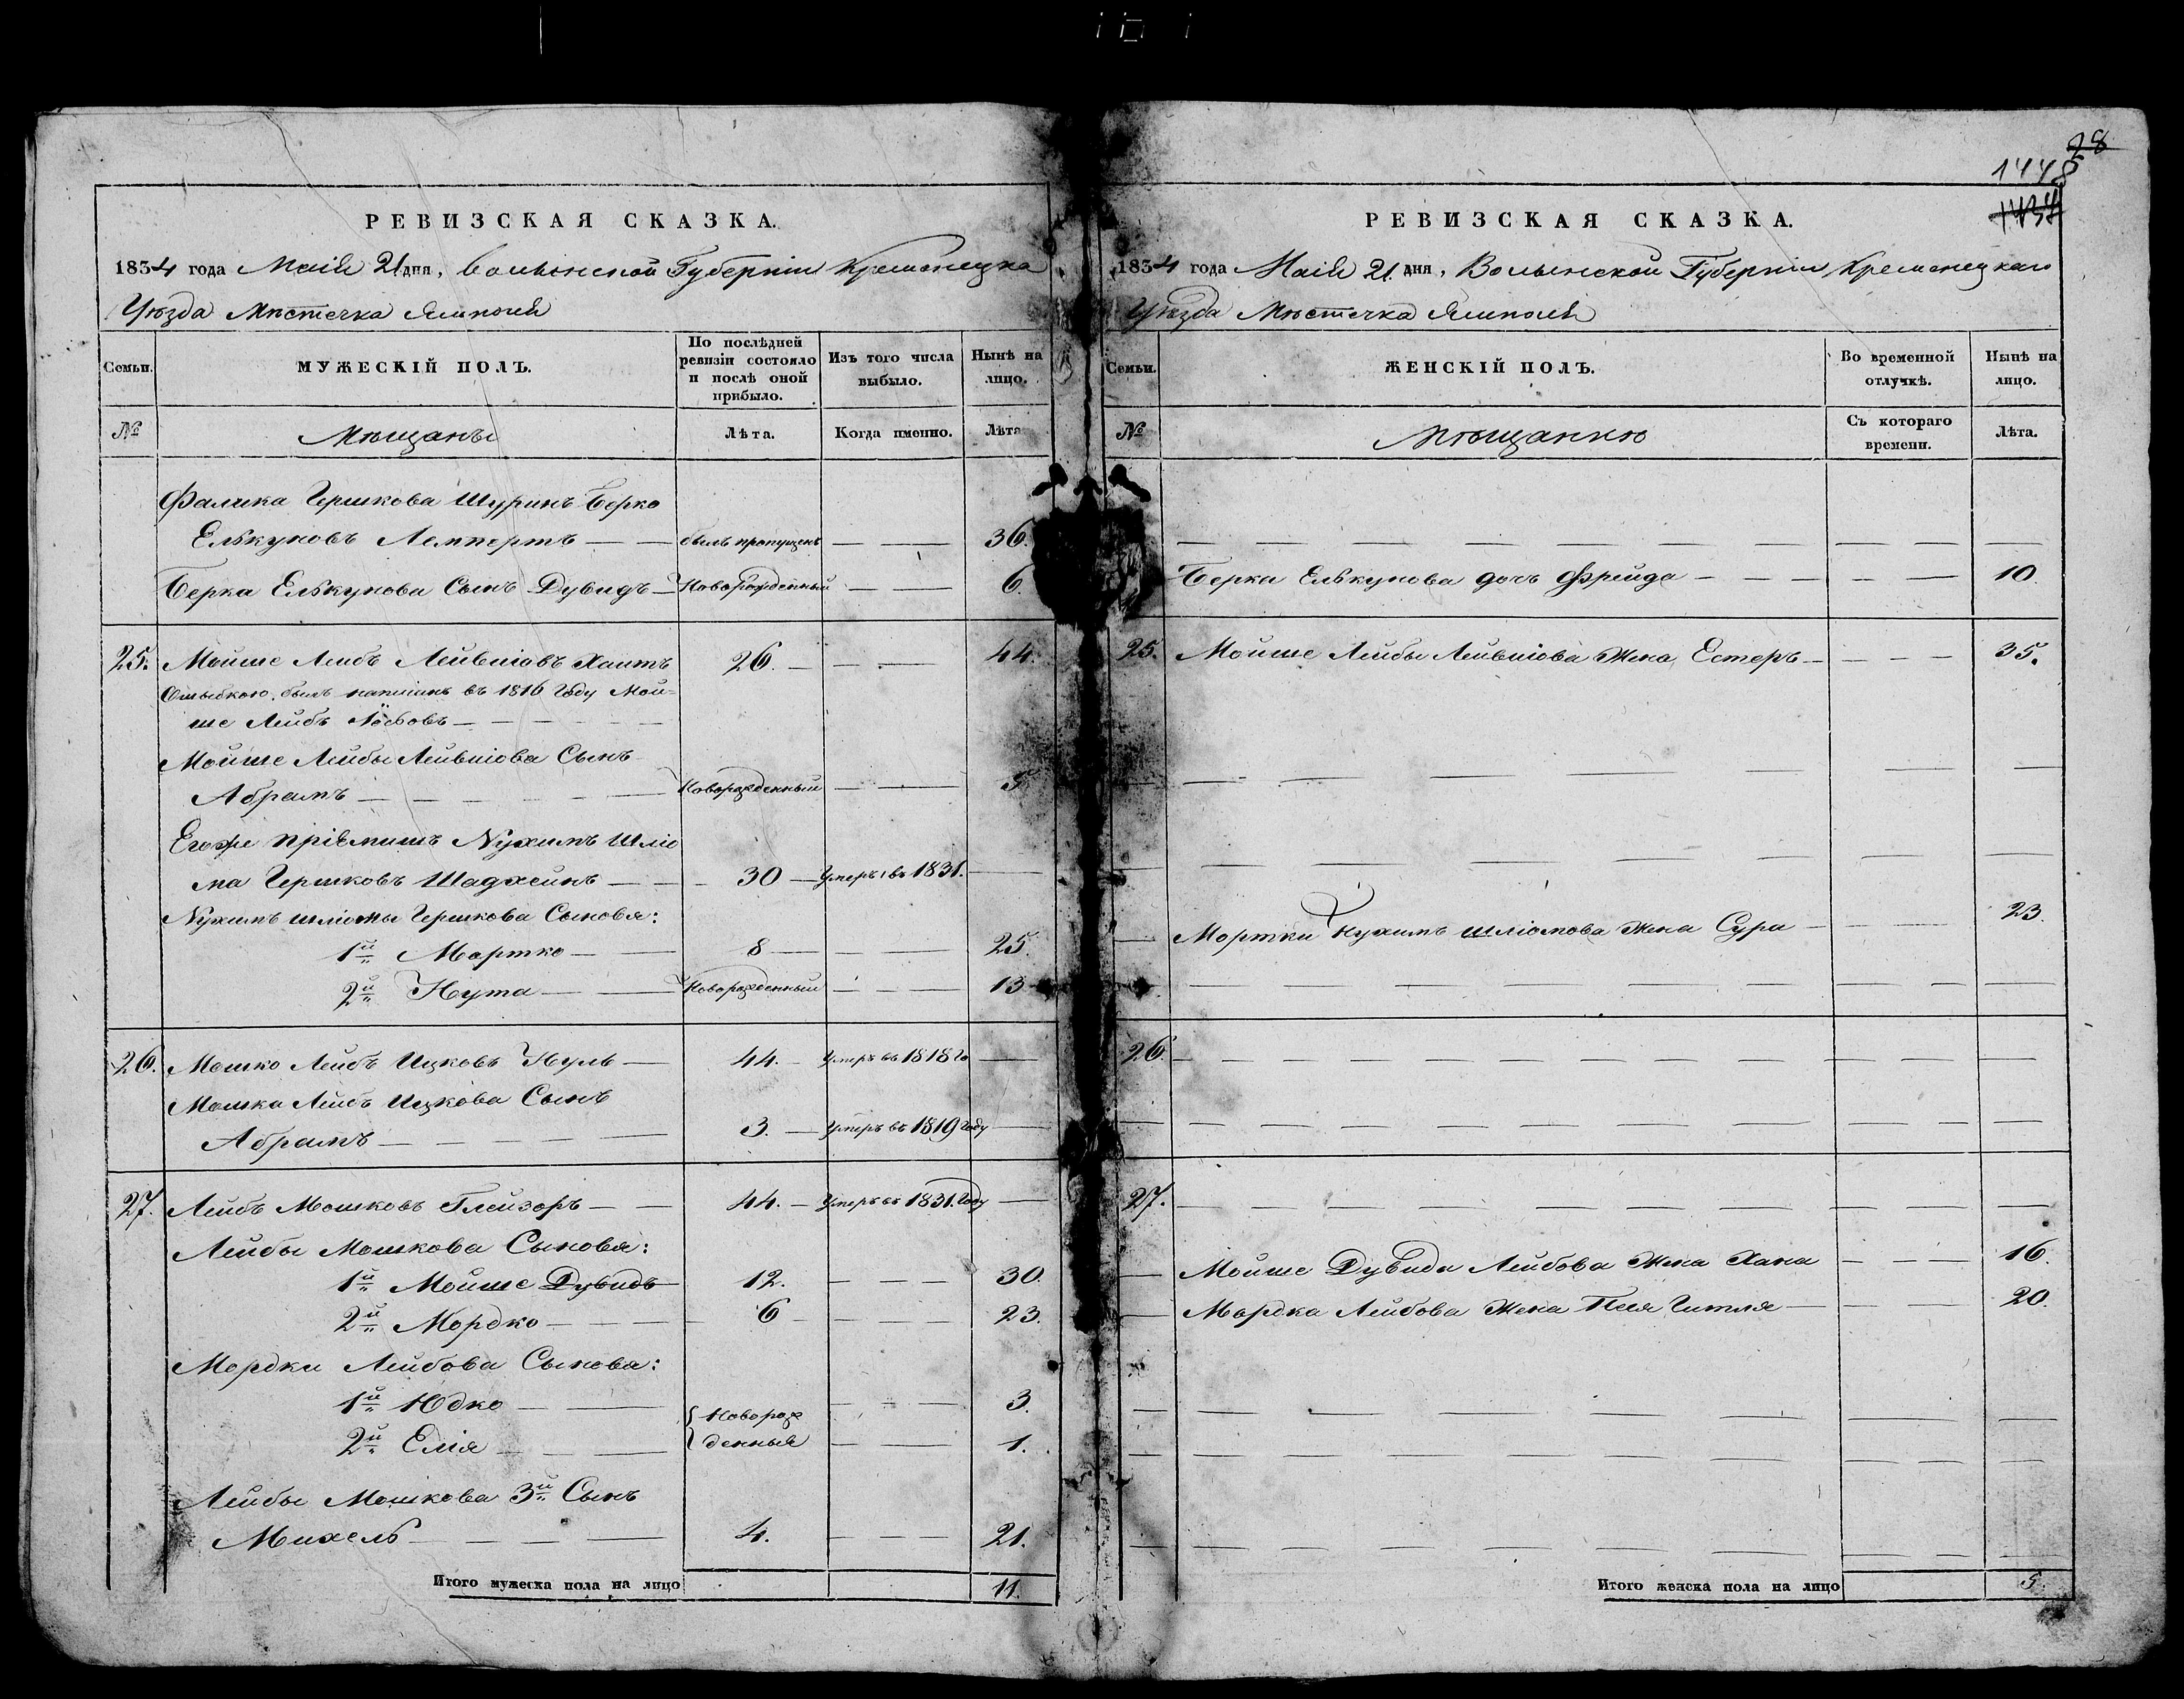 28
1448
1434
РЕВИЗСКАЯ СКАЗКА.
1834 года Маія 21 дня, Волынской Губерніи Кременецка
Уѣзда Мѣстечка Ямполя
Семьи.
МУЖЕСКІЙ ПОЛЪ.
По послѣдней ревизіи состояло и послѣ оной прибыло.
Изъ того числа выбыло.
Нынѣ на лицо.
№
Мѣщаны
Лѣта.
Когда именно.
Лѣта
Фалика Гершкова Шуринъ Берко
Елькуновъ Лемпертъ — — былъ пропущенъ — — 36.
Берка Елькунова Сынъ Дувидъ — Новорожденный — — 6
25. Мойше Лейбъ Лейвиіовъ Хаитъ 26. — — — 44.
Ошыбкою былъ написанъ въ 1816 Году Мой=
ше Лейбъ Іосьовъ — — — — —
Мойше Лейбы Лейвиіова Сынъ
Абрамъ — — — — — Новорожденный — — 5
Егоже пріемишъ Нухимъ Шліо
ма Гершковъ Шадхеинъ — — 30 — Умеръ въ 1831. —
Нухимъ Шліомы Гершкова Сыновья:
1й Мортко — — 8 — — — 25.
2й Нута — — Новорожденный — — — 13
26. Мошко Лейбъ Ицковъ Нуль — 44. — Умеръ въ 1818 Го —
Мошка Лейбъ Ицкова Сынъ
Абрамъ — — — — 3. — Умеръ въ 1819 Году —
27. Лейбъ Мошковъ Глейзоръ — — 44. — Умеръ въ 1831. Году —
Лейбы Мошкова Сыновья:
1й Мойше Дувидъ 12. — — — 30.
2й Мордко — — — 6 — — — — 23.
Мордки Лейбова Сыновя:
1й Юдко — — Новорож — — — 3.
2й Елія — — — денныя — — 1.
Лейбы Мошкова 3й Сынъ
Михель — — — — 4. — — — 21.
Итого мужеска пола на лицо 11.
РЕВИЗСКАЯ СКАЗКА.
1834 года Маія 21 дня, Волынской Губерніи Кременецкаго
Уѣзда Мѣстечка Ямполя
Семьи.
ЖЕНСКІЙ ПОЛЪ.
Во временной отлучкѣ.
Нынѣ на лицо.
№
Мѣщанкѣ
Съ котораго времени.
Лѣта.
Берки Елькунова дочъ Фрейда — — — — — 10.
25. Мойше Лейбы Лейвиіова Жена Естеръ — — — — 35.
Мортки Нухимъ Шліомова Жена Сура — — — 23.
26. — — — — — — — — — —
27. — — — — — — — — — —
Мойше Дувида Лейбова Жена Хана — — — 16.
Мордка Лейбова Жена Песя Гитля — — — 20.
Итого женска пола на лицо 5.